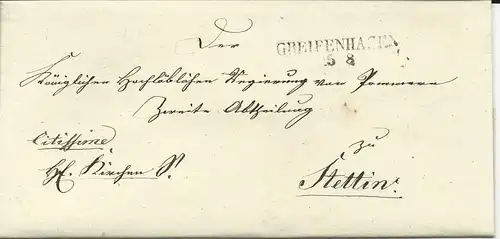 Der
GREIFENHAGEN
15 8
Königlichen Hochlöblichen Regierung von Pommern
Zweite Abtheilung
citissime
zu
Kirchen S.
Stettin.